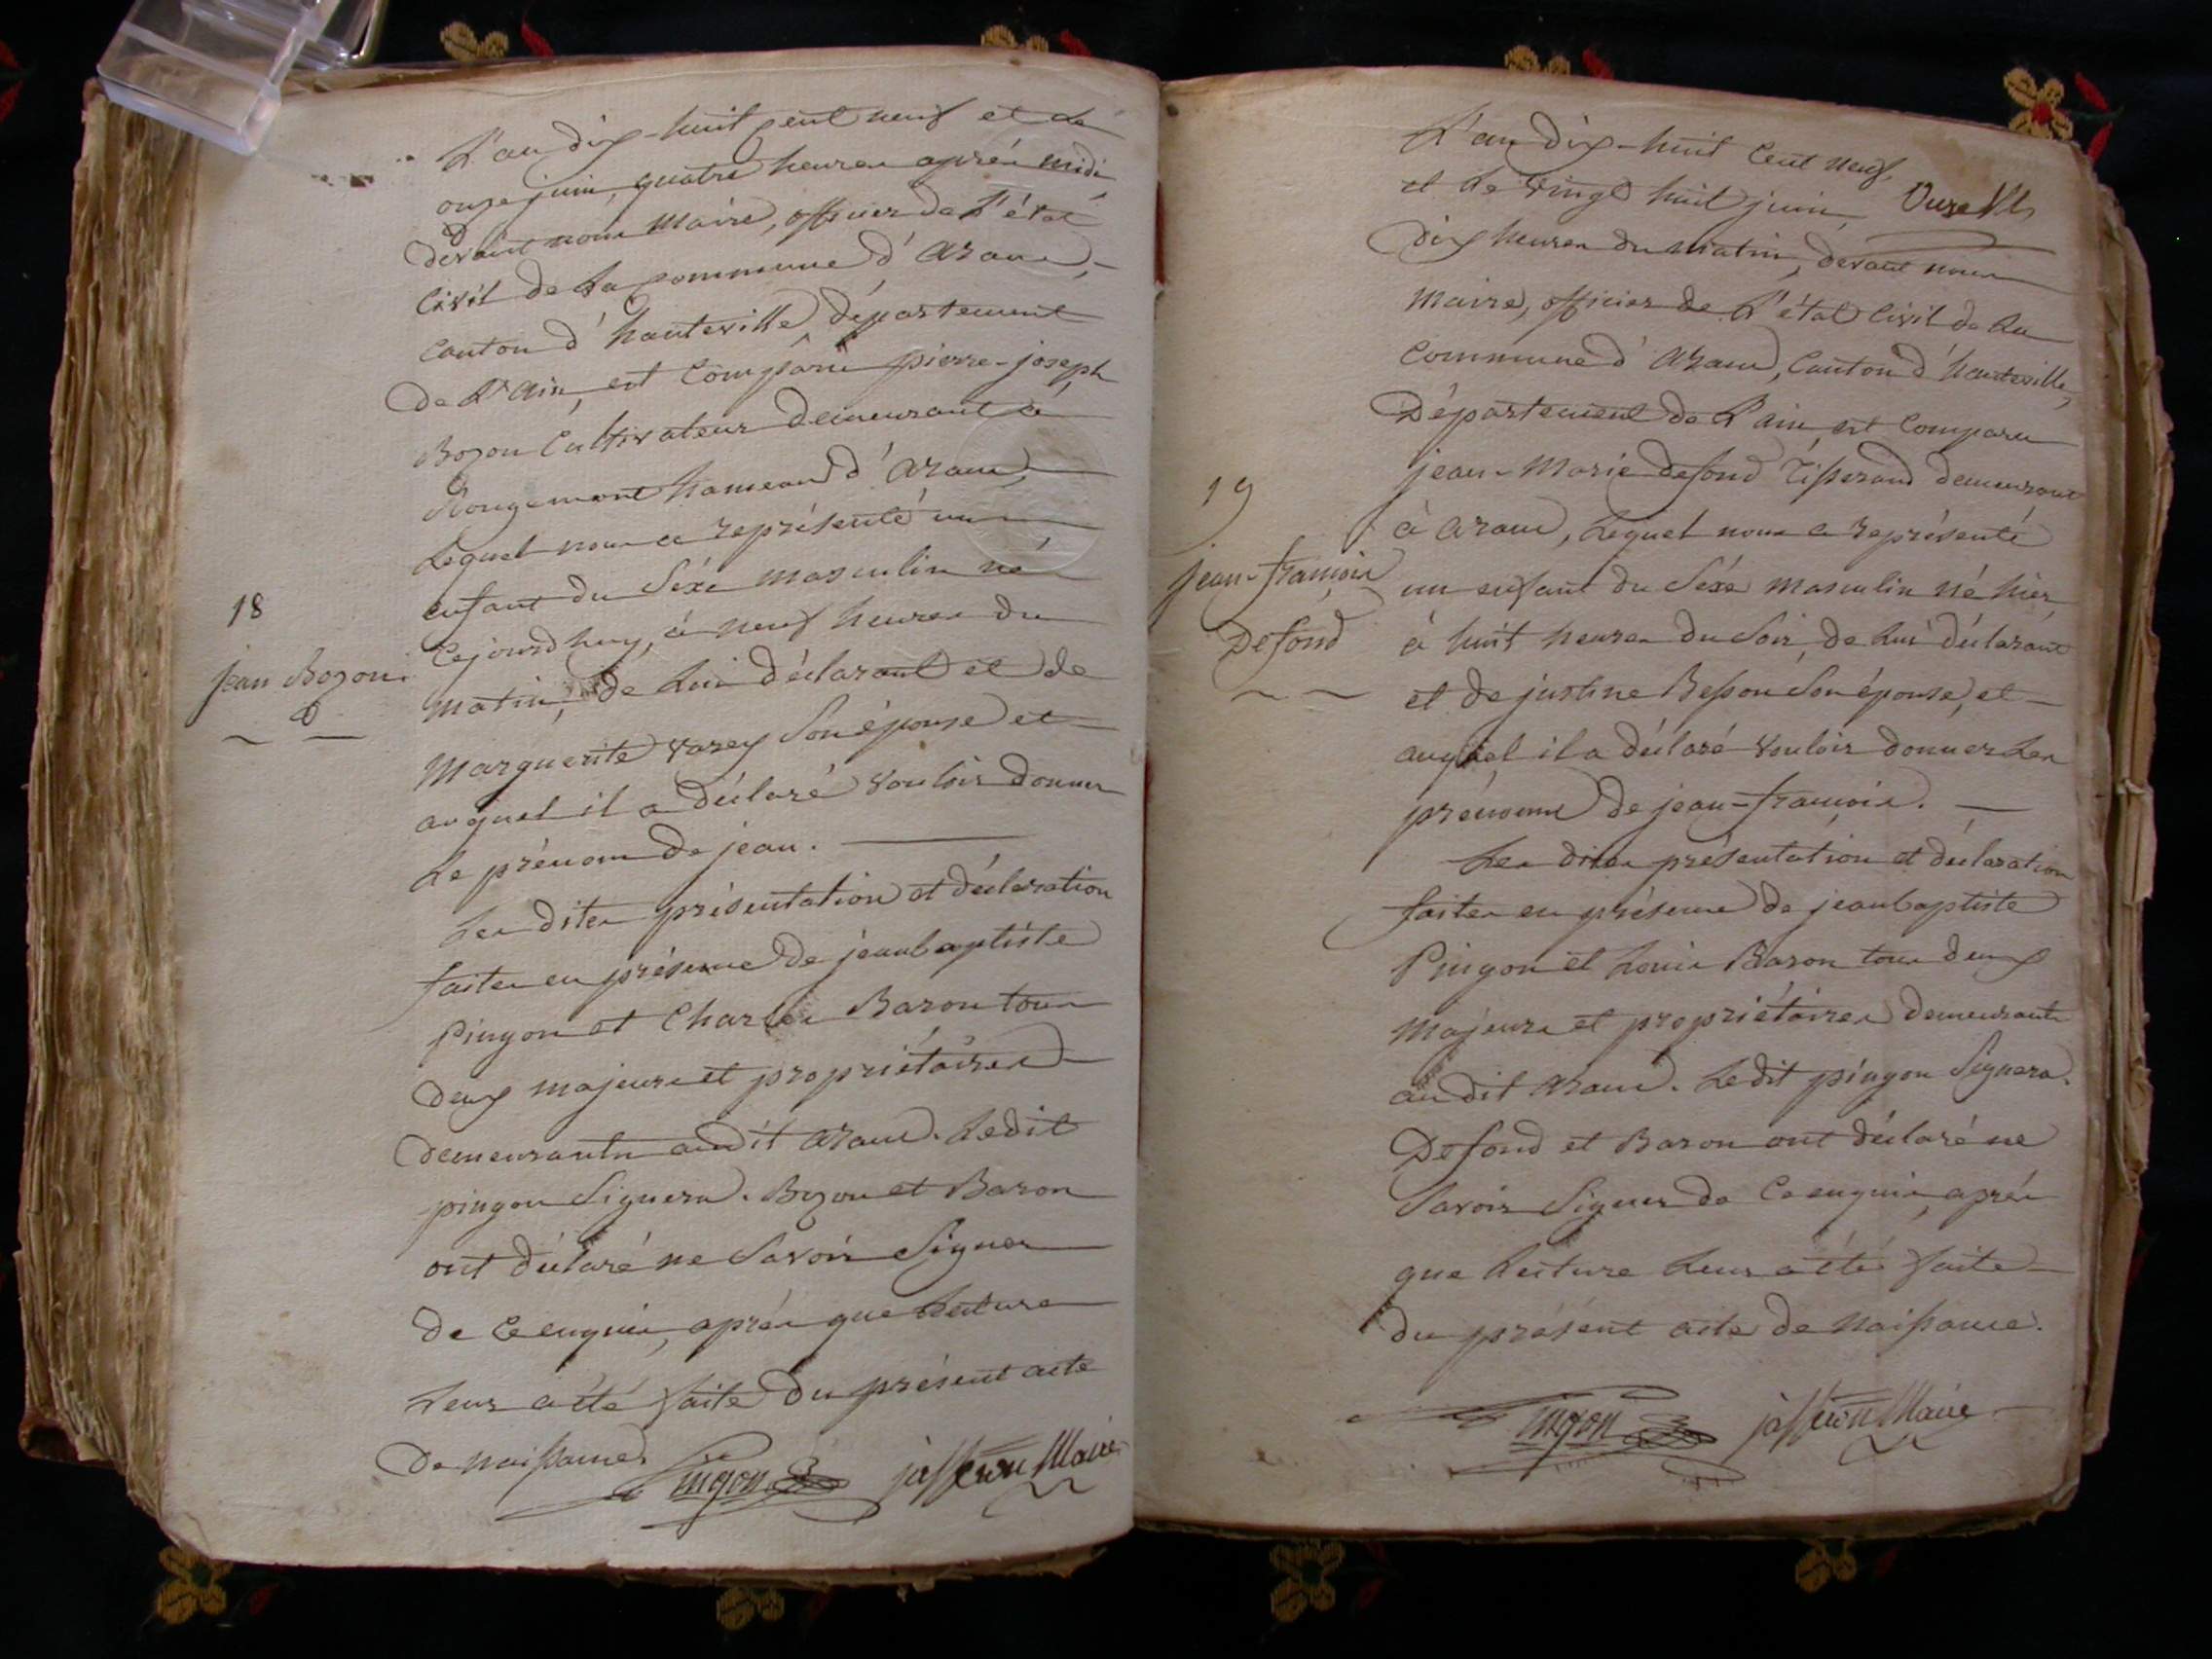 L'an dix-huit cent neuf et le
onze juin, quatre heures après midi,
devant nous Maire, officier de l'état
Civil de la commune d'Aranc,
Canton d'hauteville, département
de l'Ain, est Comparu pierre-joseph
Bozon Cultivateur demeurant à
Rougemont hameau d'Aranc,
Lequel nous a représenté un
enfant du Séxe masculin né
Cejourdhuy, à neuf heures du
matin, de Lui déclarant et de
Marguerite Varey Son épouse et
auquel il a déclaré vouloir donner
Le prénom de jean.
Les dites présentation et déclaration
faites en présence de jeanbaptiste
Pingon et Charles Baron tous
deux majeurs et propriétaires
demeurants audit Aranc. Ledit
pingon Signera. Bozon et Baron
ont déclaré ne Savoir Signer
de Ce enquis, après que Lecture
Leur a été faite du présent acte
de naissance.
Pingon jasseron Maire
18
jean Bozon
L'an dix-huit Cent neuf,
et Le vingt huit juin,
dix heures du matin, devant nous
Maire, officier de L'état Civil de La
Commune d'Aranc, Canton d'hauteville,
Département de l'ain est Comparu
jean-Marie Defond Tisserand demeurant
à aranc, Lequel nous a représenté
un enfant du Séxe masculin né hier
à huit heures du Soir, de Lui déclarant
et de justine Besson Son épouse, et
auquel il a déclaré vouloir donner Les
prénoms de jean-françois.
Les dites présentation et déclaration
faites en présence de jeanbaptiste
Pingon et Louis Baron tous deux
majeurs et propriétaires demeurants
au dit Aranc. Ledit pingon Signera.
Defond et Baron ont déclaré ne
Savoir Signer de Ce enquis, après
que Lecture Leur a été faite
du présent acte de Naissance.
Pingon jasseron Maire
19
jean-françois
Defond